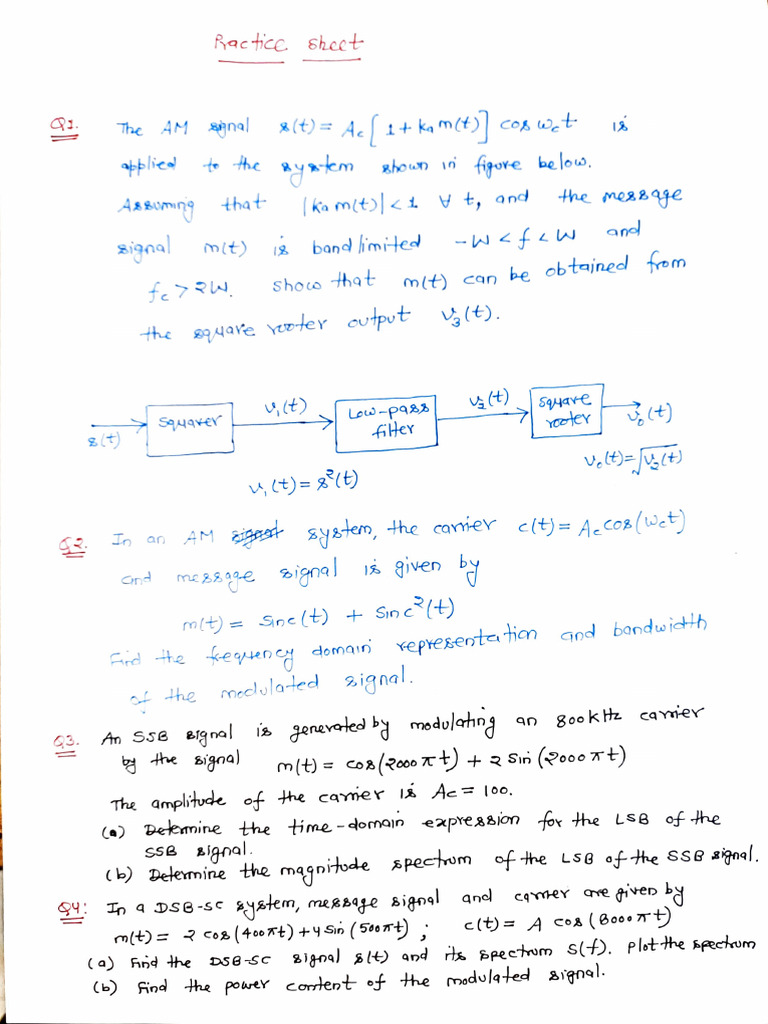 Practice sheet
Q1. The AM signal s(t) = Ac[1 + ka m(t)] cos ωct is
applied to the system shown in figure below.
Assuming that |ka m(t)| < 1 ∀ t, and the message
signal m(t) is bandlimited -W < f < W and
fc > 2W. show that m(t) can be obtained from
the square rooter output v3(t).
s(t)
squarer
v1(t)
Low-pass
filter
v2(t)
square
rooter
vo(t)
v1(t) = s²(t)
vo(t) = √v2(t)
Q2. In an AM signal system, the carrier c(t) = Ac cos(ωct)
and message signal is given by
m(t) = sinc(t) + sinc²(t)
Find the frequency domain representation and bandwidth
of the modulated signal.
Q3. An SSB signal is generated by modulating an 800kHz carrier
by the signal m(t) = cos(2000πt) + 2 sin(2000πt)
The amplitude of the carrier is Ac = 100.
(a) Determine the time-domain expression for the LSB of the
SSB signal.
(b) Determine the magnitude spectrum of the LSB of the SSB signal.
Q4: In a DSB-SC system, message signal and carrier are given by
m(t) = 2 cos(400πt) + 4 sin(500πt) ; c(t) = A cos(8000πt)
(a) Find the DSB-SC signal s(t) and its spectrum S(f). Plot the spectrum
(b) Find the power content of the modulated signal.